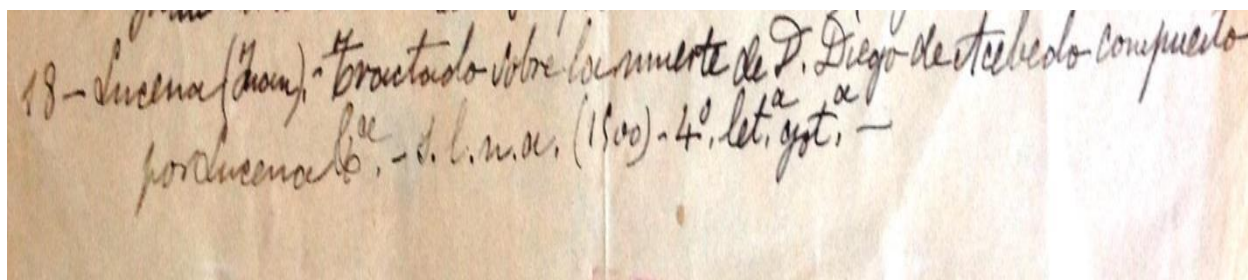 18 - Lucena (Juan).- Tractado sobre la muerte de D. Diego de Acebedo compuesto
por Lucena &.ª - s. l. n. a. (1500) - 4º. let.ª got.ª -